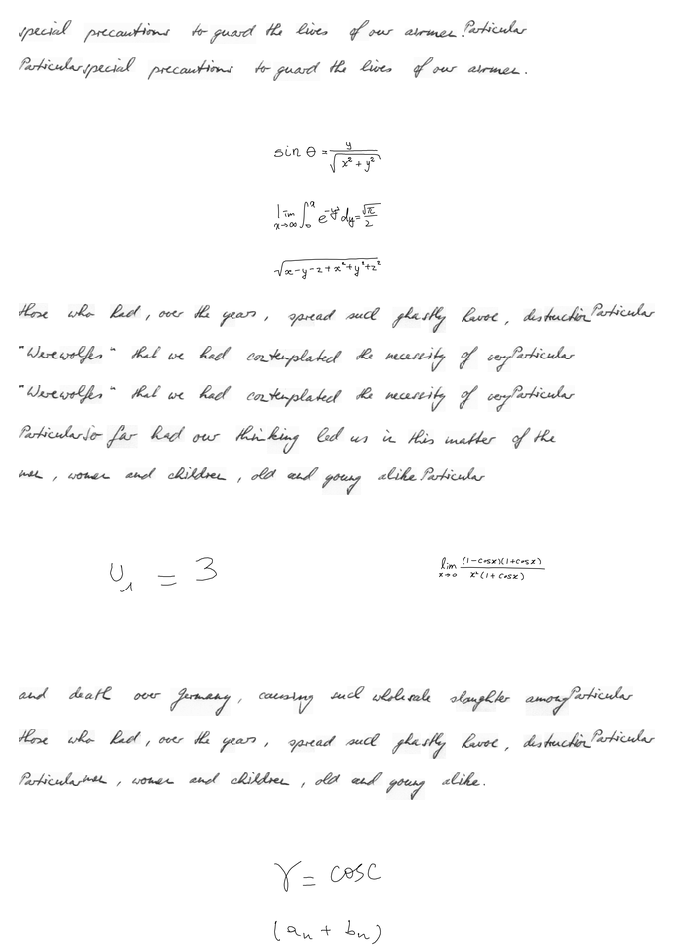 special precautions to guard the lives of our airmen. Particular
Particular special precautions to guard the lives of our airmen.
sin θ = y / √(x² + y²)
lim x→∞ ∫₀ᵃ e^(-y²) dy = √π / 2
√(x-y-z+x²+y²+z²)
those who had, over the years, spread such ghastly havoc, destruction Particular
"Werewolfes" that we had contemplated the necessity of very Particular
"Werewolfes" that we had contemplated the necessity of very Particular
Particular So far had our thinking led us in this matter of the
men, women and children, old and young alike Particular
U₁ = 3
lim x→0 (1-cosx)(1+cosx) / x²(1+cosx)
and death over Germany, causing such wholesale slaughter among Particular
those who had, over the years, spread such ghastly havoc, destruction Particular
Particular men, women and children, old and young alike.
γ = cosc
(aₙ + bₙ)